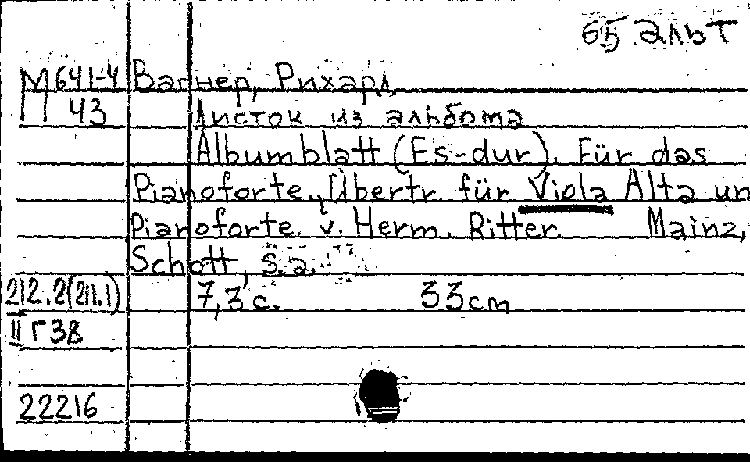 65 альт
М641-4 Вагнер, Рихард
П 43 Листок из альбома
Albumblatt (Es-dur). Für das
Pianoforte, Übertr. für Viola Alta un
Pianoforte. v. Herm. Ritter Mainz,
Schott, s.a.
212.2(211.1) 7,3 с. 33 cm
II Г 38
22216